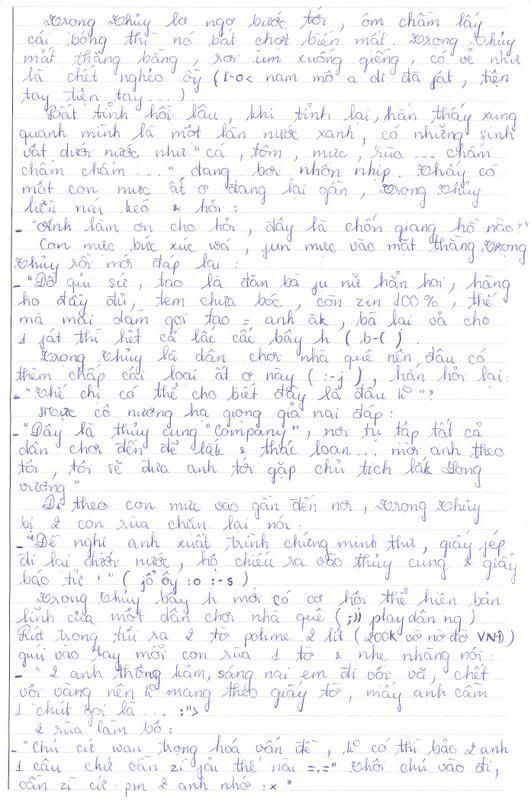 Trọng Thủy lơ ngơ bước tới, ôm chầm lấy
cái bóng thì nó bất chợt biến mất. Trọng Thủy
mất thăng bằng, rơi ùm xuống giếng, có vẻ như
là chết nghẻo òy (1-0< nam mô a di đà fật, tiện
tay tiện tay...)
Bất tỉnh hồi lâu, khi tỉnh lại, hắn thấy xung
quanh mình là một làn nước xanh, có những sinh
vật dưới nước như "cá, tôm, mực, rùa... chấm
chấm chấm..." đang bơi nhộn nhịp. Thấy có
một con mực ất ơ đang lại gần, Trọng Thủy
liền níu kéo & hỏi:
- "Anh làm ơn cho hỏi, đây là chốn giang hồ nào?"
Con mực bức xúc wá, fun mực vào mặt thằng Trọng
Thủy rồi mới đáp lại:
- "Đồ quỉ sứ, tao là đàn bà fụ nữ hẳn hoi, hàng
họ đầy đủ, tem chưa bóc, còn zin 100%, thế
mà mài dám gọi tao = anh àk, bà lại vả cho
1 fát thì hết cả lấc cấc bây h (b-( )
Trọng Thủy là dân chơi nhà quê nên đâu có
thèm chấp cái loại ất ơ này ( :-j ), hắn hỏi lại:
- "Thế chị có thể cho biết đây là đâu k"?
Mực cô nương hạ giọng giả nai đáp:
- "Đây là thủy cung "Company", nơi tụ tập tất cả
dân chơi đến để lắk & thác loạn... mời anh theo
tôi, tôi sẽ đưa anh tới gặp chủ tịch lắk Long
vương"
Đi theo con mực vào gần đến nơi, Trọng Thủy
bị 2 con rùa chặn lại nói:
- "Đề nghị anh xuất trình chứng minh thư, giấy fép
đi lại dưới nước, hộ chiếu ra vào thủy cung & giấy
báo tử!" (jồ ôy :o :-s )
Trọng Thủy bây h mới có cơ hội thể hiện bản
lĩnh của một dân chơi nhà quê ( ;)) playdân ng)
Rút trong túi ra 2 tờ polime 2 lít (200k vờ nờ đờ VNĐ)
gúi vào tay mỗi con rùa 1 tờ & nhẹ nhàng nói:
- "2 anh thông kảm, sáng nai em đi vội vã, chết
vội vàng nên k mang theo giấy tờ, mấy anh cầm
1 chút gọi là... :">
2 rùa làm bộ:
- "Chú cứ wan trọng hoá vấn đề, k có thì bảo 2 anh
1 câu chứ cần zì fải thế nài =.=" Thôi chú vào đi,
cần zì cứ pm 2 anh nhớ :x "